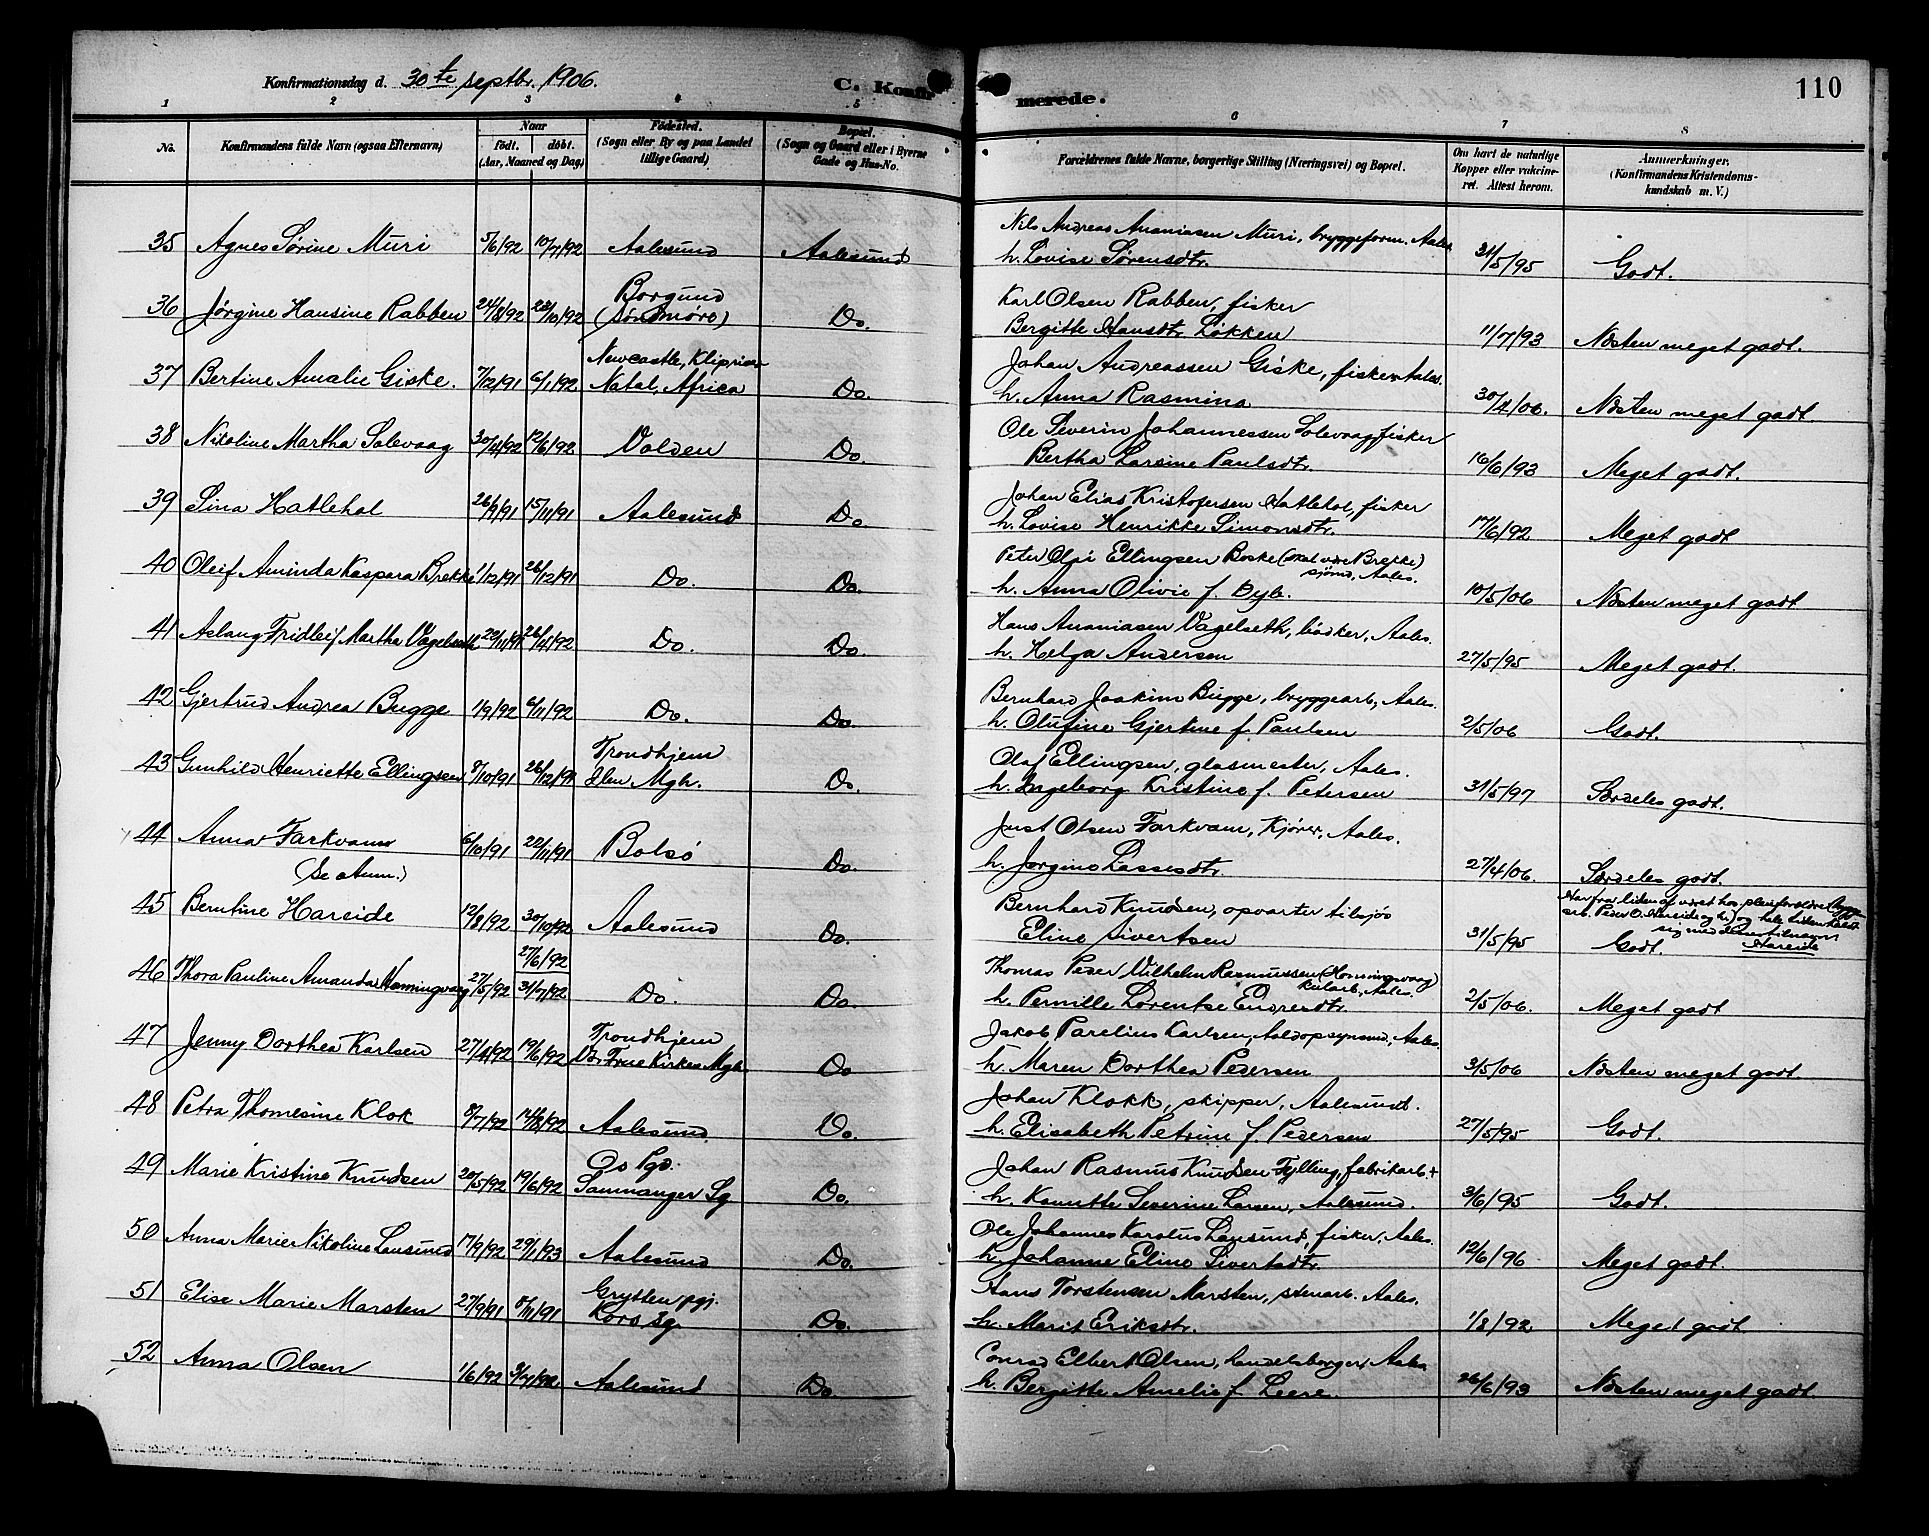 Konfirmationsdag d. 30te septbr. 1906.
C. Konfirmerede.
110
1 2 3 4 5 6 7 8
No.
Konfirmandens fulde Navn (ogsaa Efternavn)
Naar
født. døbt.
(Aar, Maaned og Dag)
Fødested.
(Sogn eller By og paa Landet
tillige Gaard)
Bopæl.
(Sogn og Gaard eller i Byerne
Gade og Hus-No.
Forældrenes fulde Navne, borgerlige Stilling (Næringsvei) og Bopæl.
Om havt de naturlige
Kopper eller vakcine-
ret. Attest herom.
Anmerkninger.
(Konfirmandens Kristendoms-
kundskab m. V.)
35 Agnes Sørine Muri 5/6/92 10/7/92 Aalesund Aalesund
Nils Andreas Ananiasen Muri, bryggeform. Aales.
h. Lovise Sørensdtr. 31/5/95 Godt.
36 Jørgine Hansine Rabben 24/8/92 23/10/92 Borgund
(Søndmøre) Do.
Karl Olsen Rabben, fisker
Bergitte Hansdtr. Løkken 11/7/93 Næsten meget godt.
37 Bertine Amalie Giske. 7/12/91 6/1/92 Newcastle,
Natal, Africa Do.
Johan Andreassen Giske, fisker Aales.
h. Anna Rasmina 30/4/06. Næsten meget godt.
38 Nikoline Martha Solevaag 30/4/92 12/6/92 Volden Do.
Ole Severin Johannessen Solevaag, fisker
Bertha Larsine Paulsdtr. 16/6/93 Meget godt.
39 Sina Hatlehol 26/9/91 15/11/91 Aalesund Do.
Johan Elias Kristofersen Hatlehol, fisker
h. Lovise Henrikke Simonsdtr. 17/6/92 Meget godt
40 Oleif Aminda Kaspara Brekke 1/12/91 26/12/91 Do. Do.
Peter Olai Ellingsen Boske (skal være Brekke)
sjømd, Aales.
h. Anna Olivie f. Dyb. 10/5/06 Næsten meget godt
41 Aslaug Fridleif Martha Vagelseth 22/11/91 26/4/92 Do. Do.
Hans Ananiasen Vagelseth, bødker, Aales.
h. Helga Andersen 27/5/95 Meget godt.
42 Gjertrud Andrea Bugge 1/9/92 6/11/92 Do. Do.
Bernhard Joakim Bugge, bryggearb, Aales.
h. Olufine Gjertine f. Paulsen 2/5/06 Godt.
43 Gunhild Henriette Ellingsen 8/10/91 26/12/91 Trondhjem
Ilen Mgh. Do.
Olaf Ellingsen, glasmester, Aales.
h. Ingeborg Kristine f. Petersen 31/5/97 Særdeles godt.
44 Anna Farkvam 6/10/91 22/11/91 Bolsø Do.
(Se anm.)
Just Olsen Farkvam, Kjører, Aales.
h. Jørgine Lassesdtr 27/4/06. Særdeles godt.
45 Berntine Hareide 12/8/92 30/10/92 Aalesund Do.
Bernhard Knudsen, opvarter tilsjøs
Eline Sivertsen 31/5/95
Har fra liden af været hos pleieforældre Brygge-
arb. Peder O. Hareide og h.) og hele tiden kaldt
sig med denne tilnavn
Hareide
Godt.
46 Thora Pauline Amanda Honningsvaag 27/5/92 27/6/92
31/7/92 Do. Do.
Thomas Peder Vilhelm Rasmussen (Honningsvaag)
kularb., Aales.
h. Pernille Lorentse Endresdtr. 2/5/06. Meget godt
47 Jenny Dorthea Karlsen 27/4/92 19/6/92 Trondhjem
Vor Frue Kirkes Mgh. Do
Jakob Parelius Karlsen, Toldopsynsmd, Aales.
h. Maren Dorthea Pedersen 3/5/06 Næsten meget godt.
48 Petra Thomesine Klok 8/7/92 14/8/92 Aalesund. Do.
Johan Klokk, skipper, Aalesund.
h. Elisabeth Petrine f. Pedersen 27/5/95 Godt.
49 Marie Kristine Knudsen 20/5/92 19/6/92 Os Pgd.
Samnanger Sg Do.
Johan Rasmus Knudsen Fylling, fabrikarb. +
h. Kanutte Severine Larsen, Aalesund. 3/6/95 Godt.
50 Anna Marie Nikoline Lausund 17/9/92 29/1/93 Aalesund Do.
Ole Johannes Karolus Lausund, fisker, Aales.
h. Johanne Eline Sivertsdtr. 12/6/96 Meget godt.
51 Elise Marie Marsten 27/9/91 8/11/91 Grytten pgj.
Kors Sg. Do.
Hans Torstensen Marsten, stenarb. Aales.
h. Marit Eriksdtr. 1/8/92 Meget godt
52 Anna Olsen 1/6/92 3/7/92 Aalesund Do.
Conrad Elbert Olsen, handelsborger, Aales
h. Bergitte Amelie f. Leere. 26/6/93 Næsten meget godt.